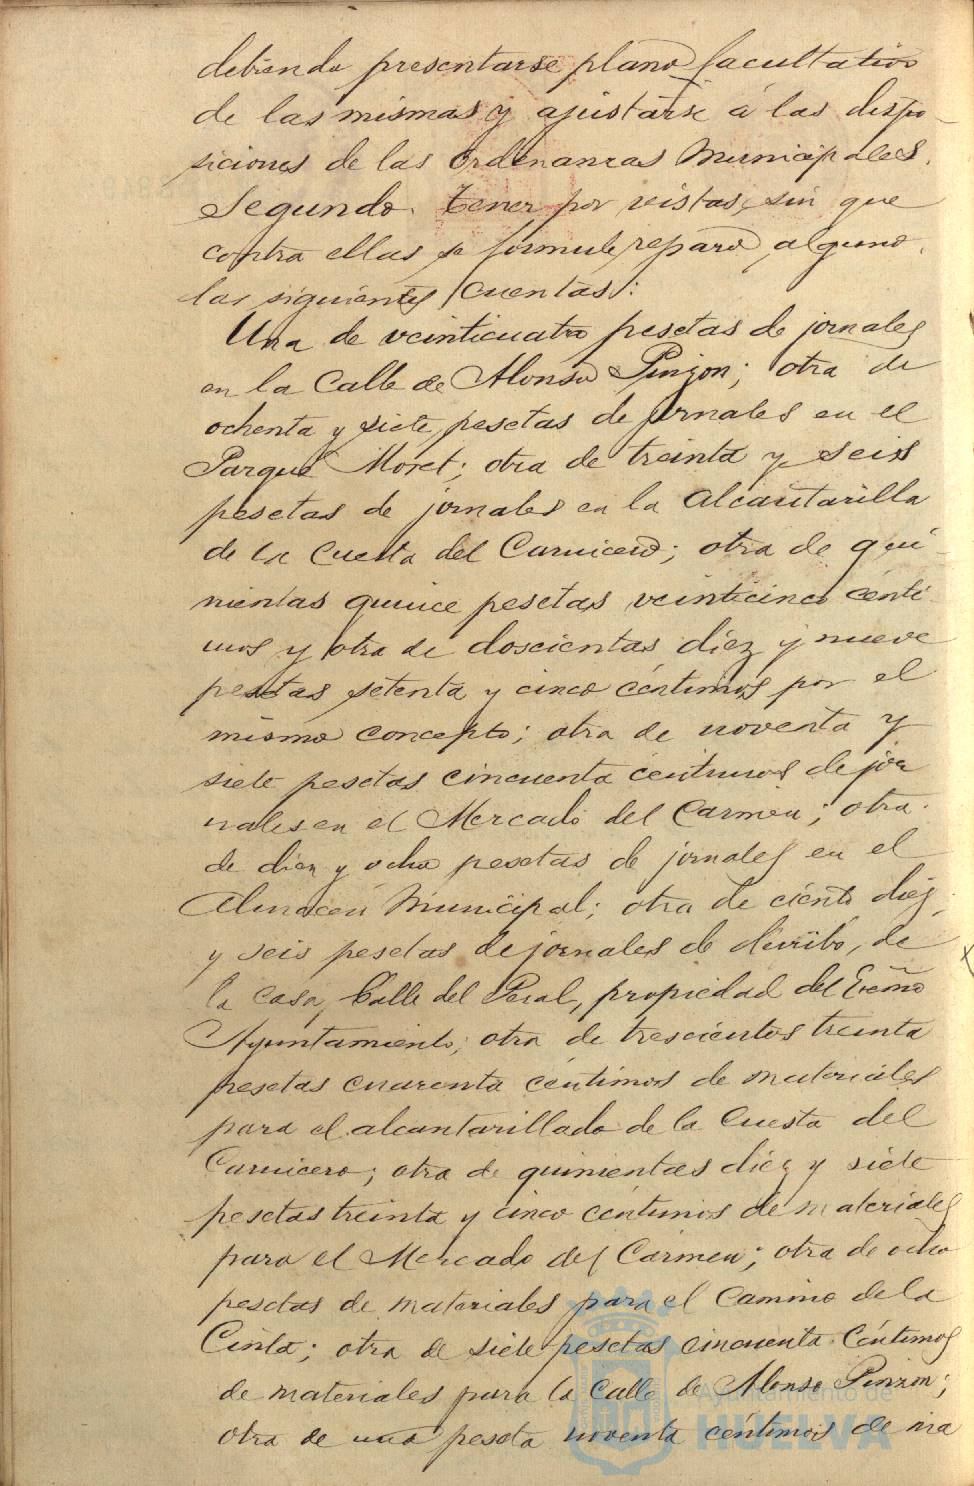 debiendo presentarse plano facultativo
de las mismas y ajustarse á las dispo-
siciones de las Ordenanzas Municipales.
Segundo. Tener por vistas, sin que
contra ellas se formule reparo alguno,
las siguientes cuentas:
Una de veinticuatro pesetas de jornales
en la Calle de Alonso Pinzon; otra de
ochenta y siete pesetas de jornales en el
Parque Moret; otra de treinta y seis
pesetas de jornales en la alcantarilla
de la Cuesta del Carnicero; otra de qui-
nientas quince pesetas veinticinco cénti-
mos y otra de doscientas diez y nueve
pesetas setenta y cinco céntimos por el
mismo concepto; otra de noventa y
siete pesetas cincuenta céntimos de jor
nales en el Mercado del Carmen; otra
de diez y ocho pesetas de jornales en el
Almacen Municipal; otra de ciento diez
y seis pesetas de jornales de derribo, de
la casa, Calle del Peral, propiedad del Excmo
Ayuntamiento; otra de trescientos treinta
pesetas cuarenta céntimos de materiales
para el alcantarillado de la Cuesta del
Carnicero; otra de quinientas diez y siete
pesetas treinta y cinco céntimos de materiales
para el Mercado del Carmen; otra de ocho
pesetas de materiales para el Camino de la
Cinta; otra de siete pesetas cincuenta céntimos
de materiales para la Calle de Alonso Pinzon;
otra de una peseta noventa céntimos de ma
Ayuntamiento de
HUELVA